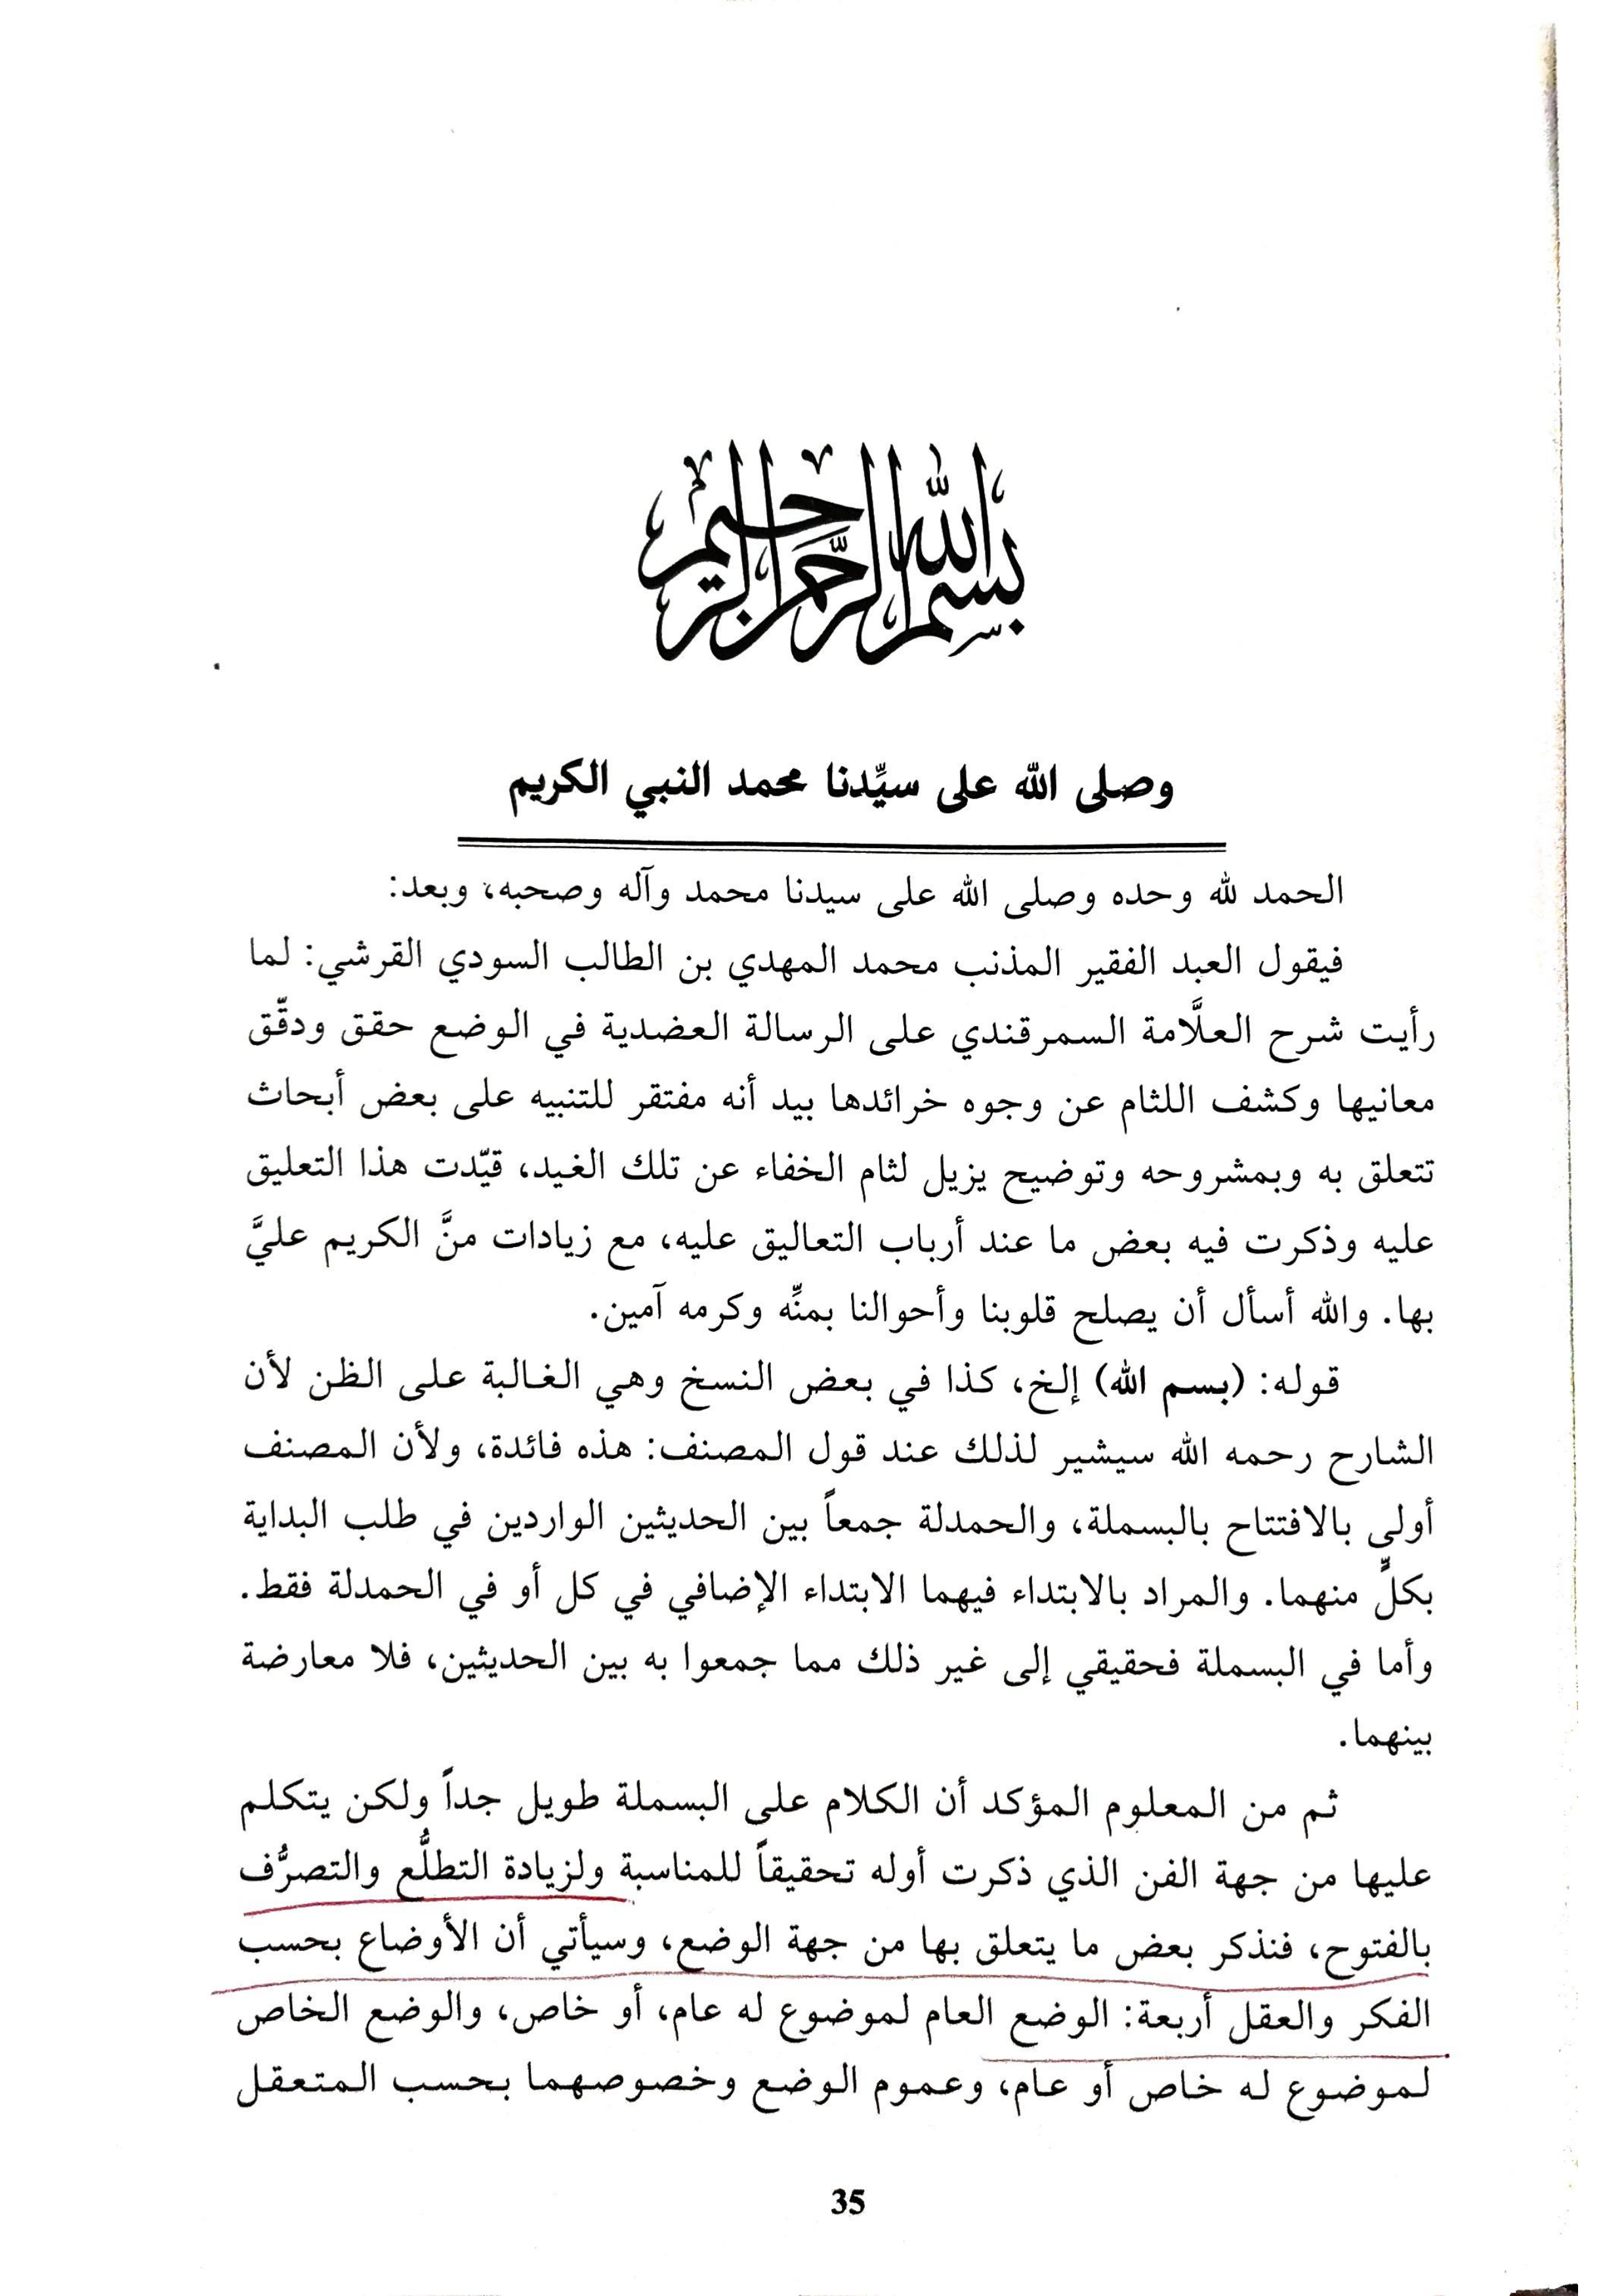 بسم الله الرحمن الرحيم
وصلى الله على سيِّدنا محمد النبي الكريم
الحمد لله وحده وصلى الله على سيدنا محمد وآله وصحبه، وبعد:
فيقول العبد الفقير المذنب محمد المهدي بن الطالب السودي القرشي: لما
رأيت شرح العلَّامة السمرقندي على الرسالة العضدية في الوضع حقق ودقّق
معانيها وكشف اللثام عن وجوه خرائدها بيد أنه مفتقر للتنبيه على بعض أبحاث
تتعلق به وبمشروحه وتوضيح يزيل لثام الخفاء عن تلك الغيد، قيّدت هذا التعليق
عليه وذكرت فيه بعض ما عند أرباب التعاليق عليه، مع زيادات منَّ الكريم عليَّ
بها. والله أسأل أن يصلح قلوبنا وأحوالنا بمنِّه وكرمه آمين.
قوله: (بسم الله) إلخ، كذا في بعض النسخ وهي الغالبة على الظن لأن
الشارح رحمه الله سيشير لذلك عند قول المصنف: هذه فائدة، ولأن المصنف
أولى بالافتتاح بالبسملة، والحمدلة جمعاً بين الحديثين الواردين في طلب البداية
بكلٍّ منهما. والمراد بالابتداء فيهما الابتداء الإضافي في كل أو في الحمدلة فقط.
وأما في البسملة فحقيقي إلى غير ذلك مما جمعوا به بين الحديثين، فلا معارضة
بينهما.
ثم من المعلوم المؤكد أن الكلام على البسملة طويل جداً ولكن يتكلم
عليها من جهة الفن الذي ذكرت أوله تحقيقاً للمناسبة ولزيادة التطلُّع والتصرُّف
بالفتوح، فنذكر بعض ما يتعلق بها من جهة الوضع، وسيأتي أن الأوضاع بحسب
الفكر والعقل أربعة: الوضع العام لموضوع له عام، أو خاص، والوضع الخاص
لموضوع له خاص أو عام، وعموم الوضع وخصوصهما بحسب المتعقل
35